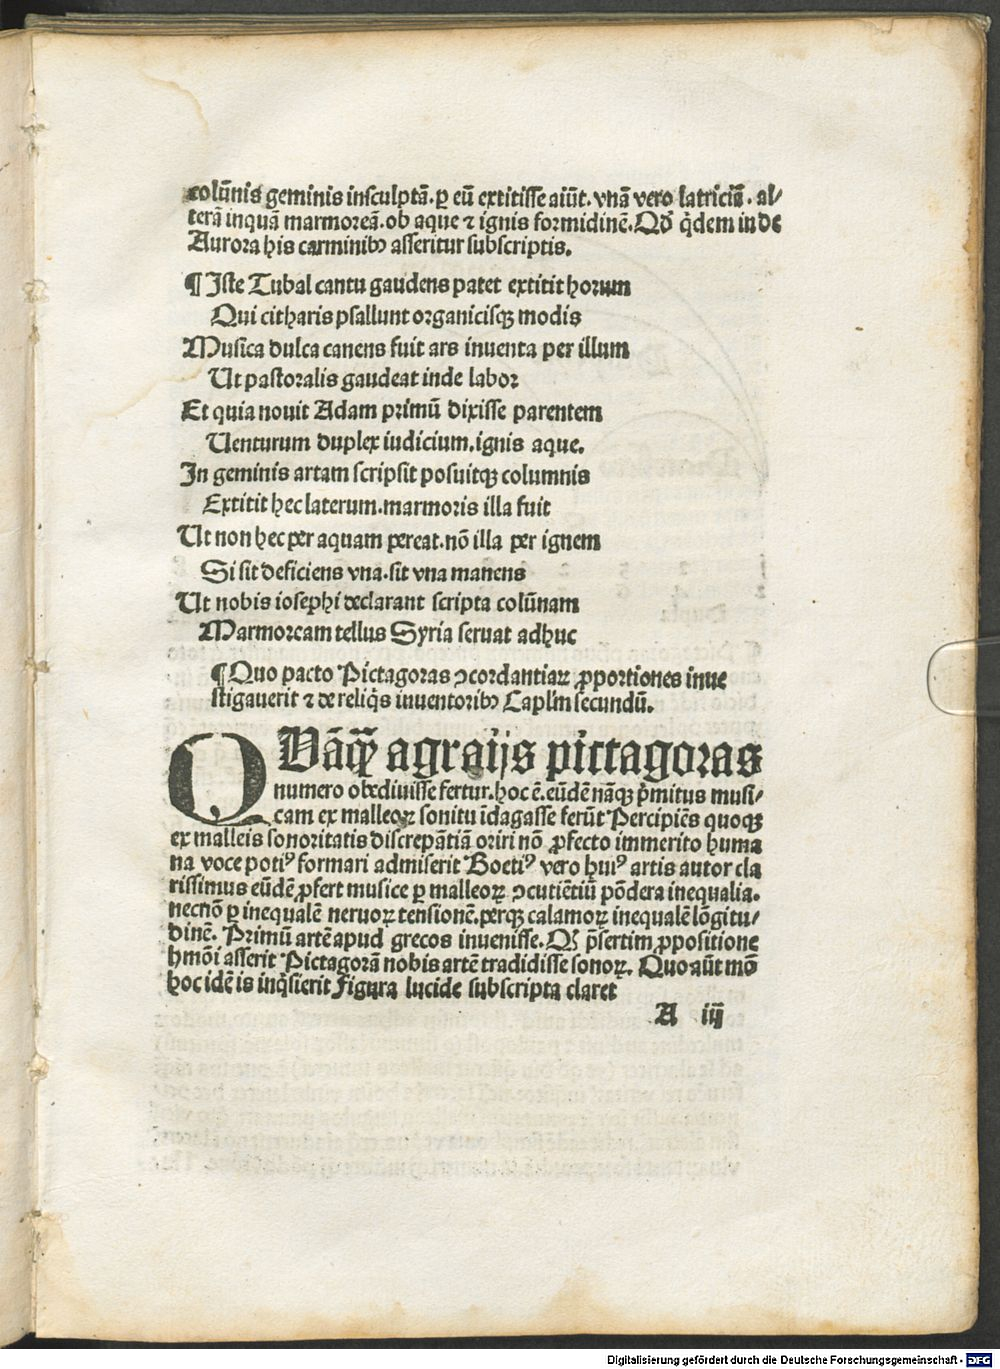 colūnis geminis insculptā. ꝑ eū extitisse aiūt. vnā vero latriciā. al⸗
terā inquā marmoreā. ob aque ⁊ ignis formidinē. Qď q̇dem in de
Aurora his carminibꝫ asseritur subscriptis.
¶ Iste Tubal cantu gaudens patet extitit horum
Qui citharis psallunt organicisqꝫ modis
Musica dulca canens fuit ars inventa per illum
Ut pastoralis gaudeat inde labor
Et quia novit Adam primū dixisse parentem
Uenturum duplex iudicium. ignis aque.
In geminis artam scripsit posuitqꝫ columnis
Extitit hec laterum. marmoris illa fuit
Ut non hec per aquam pereat. nō illa per ignem
Si sit deficiens vna. sit vna manens
Ut nobis iosephi declarant scripta colūnam
Marmoream tellus Syria servat adhuc
¶ Quo pacto Pictagoras ꝯcordantiaꝝ ꝓportiones inve
stigaverit ⁊ de reliq̇s inventoribꝫ Caplm̄ secundū.
QVāqꝫ agraijs pictagoras
numero obedivisse fertur. hoc ē. eūdē nāqꝫ p̄mitus musi⸗
cam ex malleoꝝ sonitu īdagasse ferūt Percipiēs quoqꝫ
ex malleis sonoritatis discrepātiā oriri nō ꝓfecto immerito huma
na voce potiꝰ formari admiserit Boetiꝰ vero huiꝰ artis autor cla
rissimus eūdē ꝓfert musice ꝑ malleoꝝ ꝯcutiētiū pōdera inequalia.
necnō ꝑ inequalē nervoꝝ tensionē. perqꝫ calamoꝝ inequalē lōgitu⸗
dinē. Primū artē apud grecos invenisse. Qď p̄sertim ꝓpositione
hmōi asserit Pictagorā nobis artē tradidisse sonoꝝ. Quo aūt mō
hoc idē is inq̇sierit Figura lucide subscripta claret
A iij
Digitalisierung gefördert durch die Deutsche Forschungsgemeinschaft - DFG